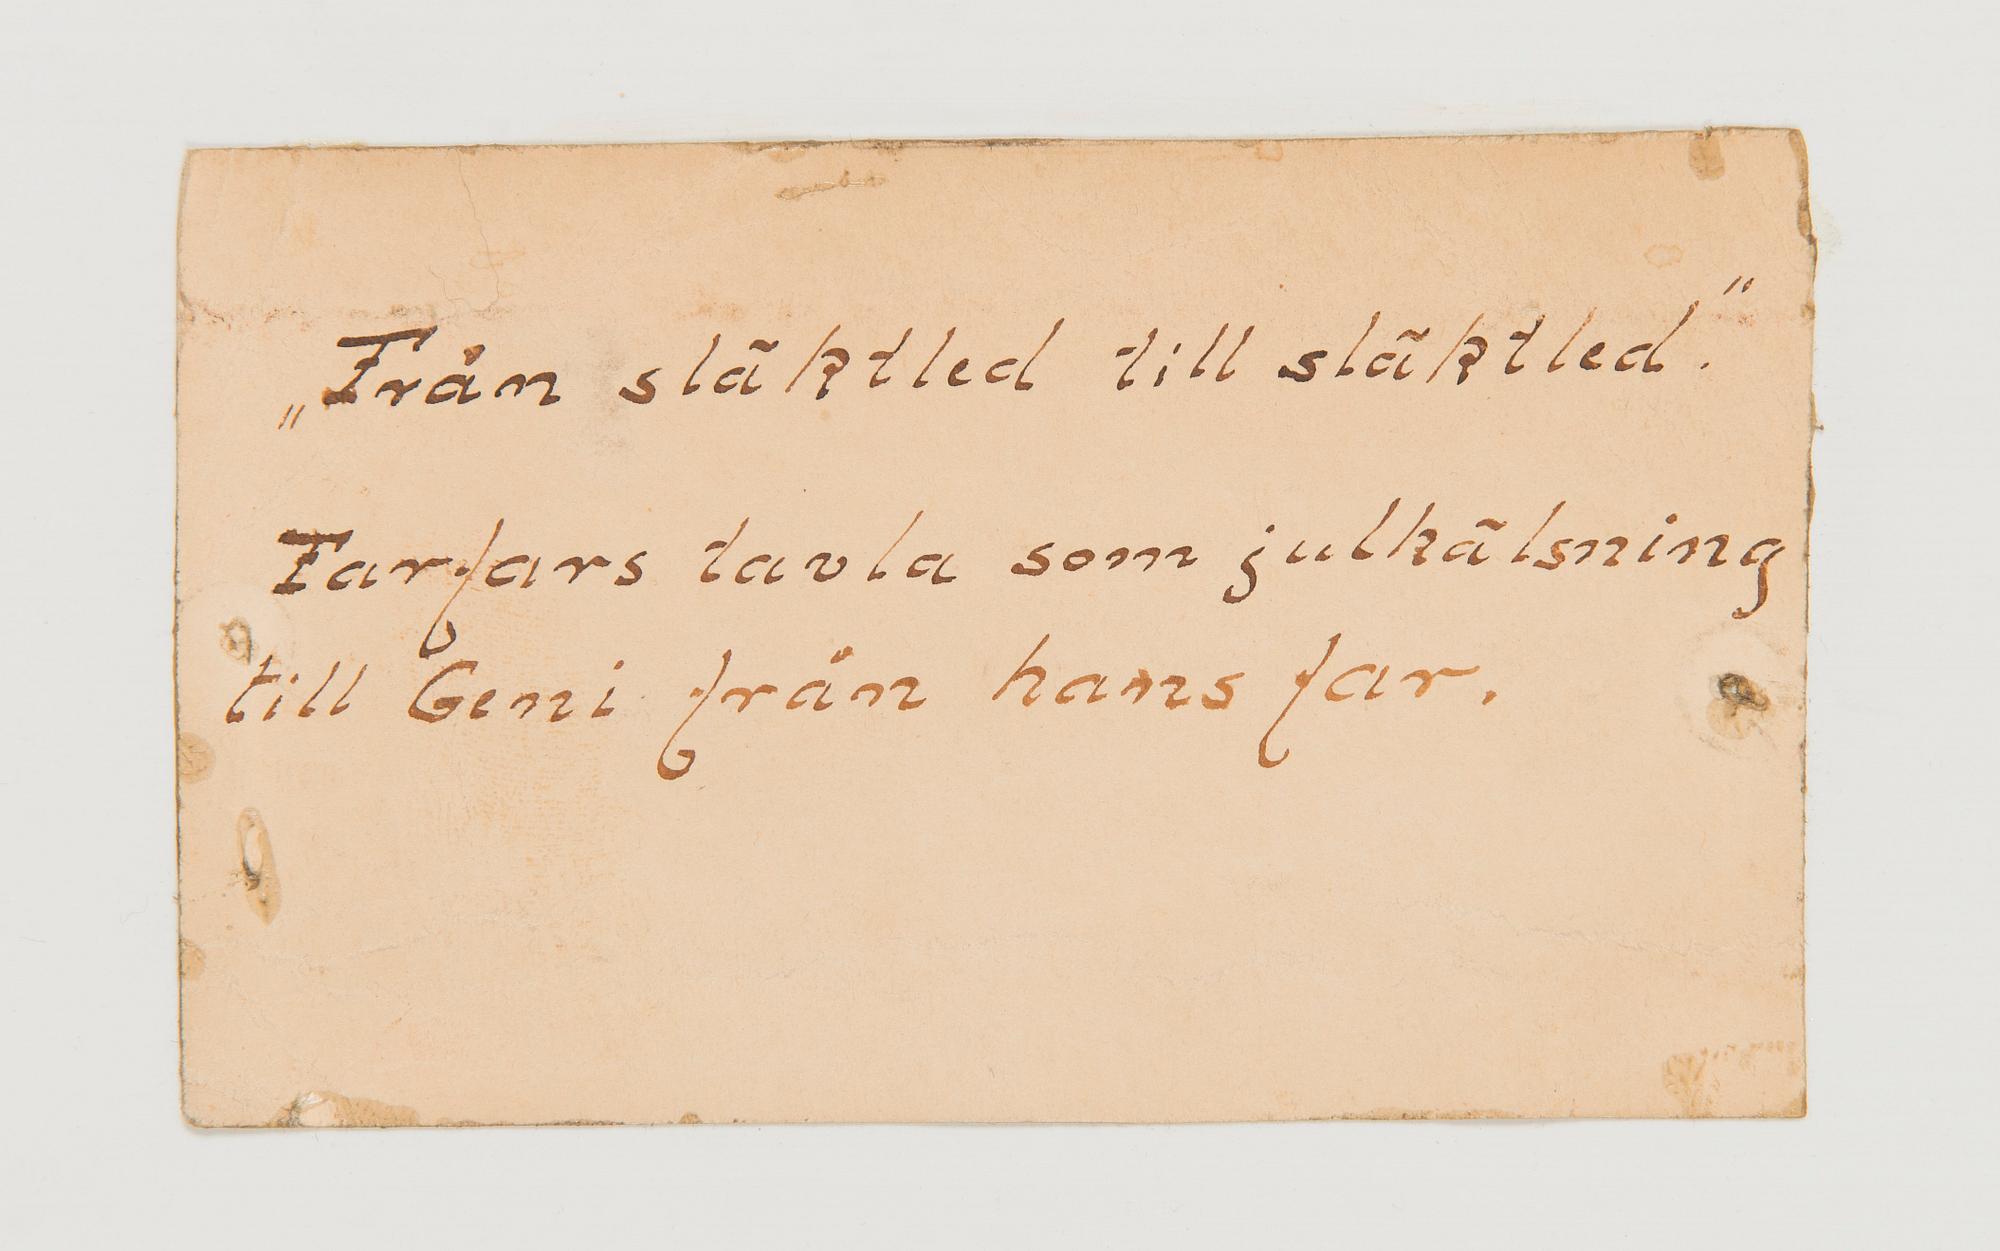 „Från släktled till släktled."
Farfars tavla som julhälsning
till Geni från hans far.